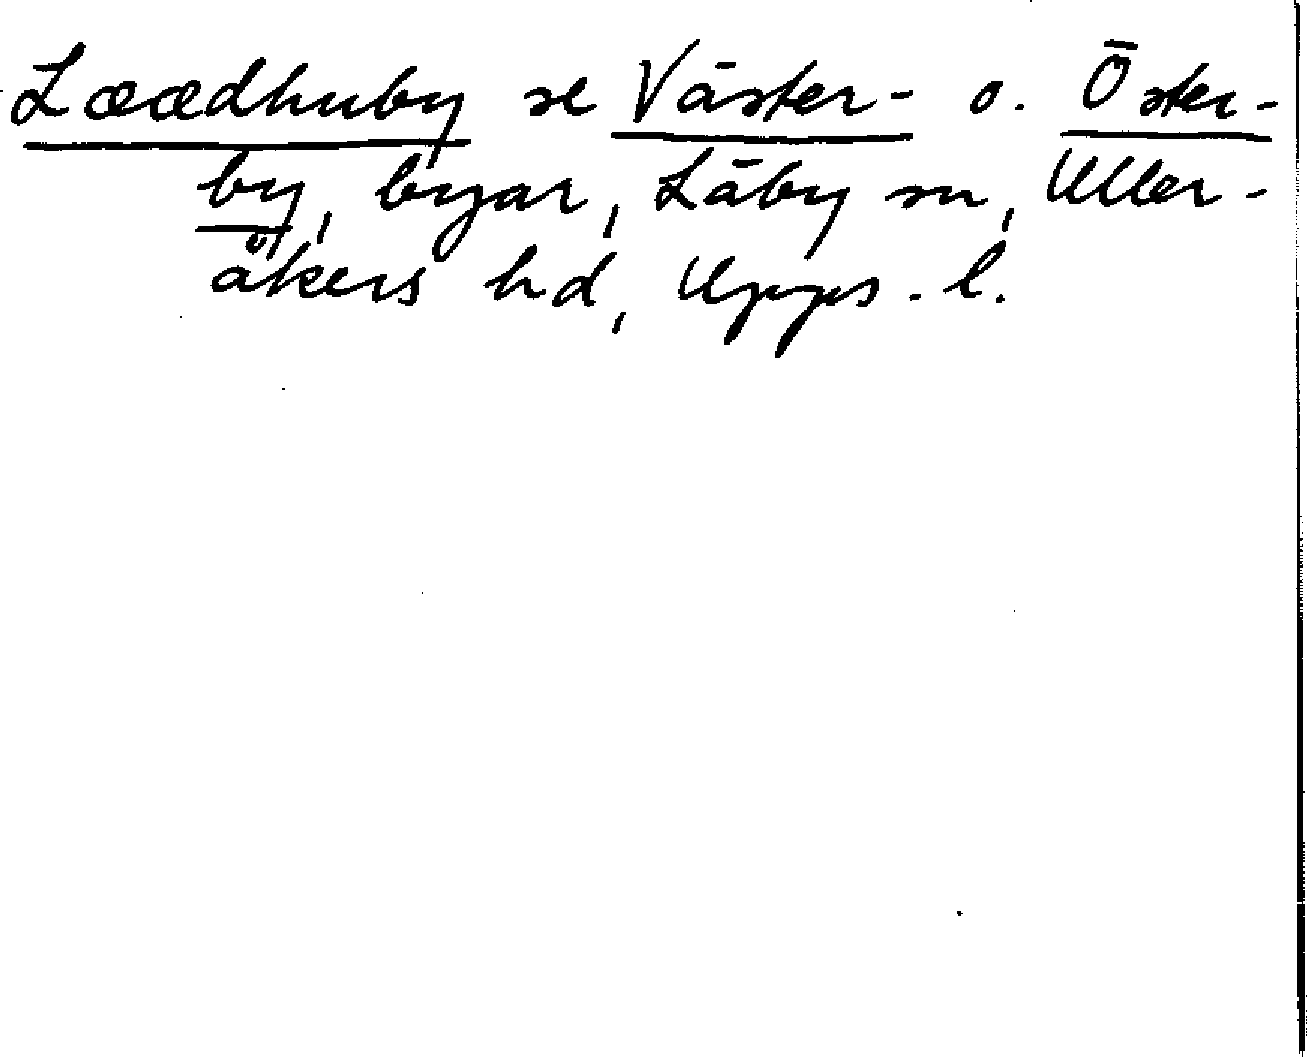 Lææædhuby se Väster- o. Öster-
by, byar, Läby sn, Uller-
åkers hd, Upps. l.